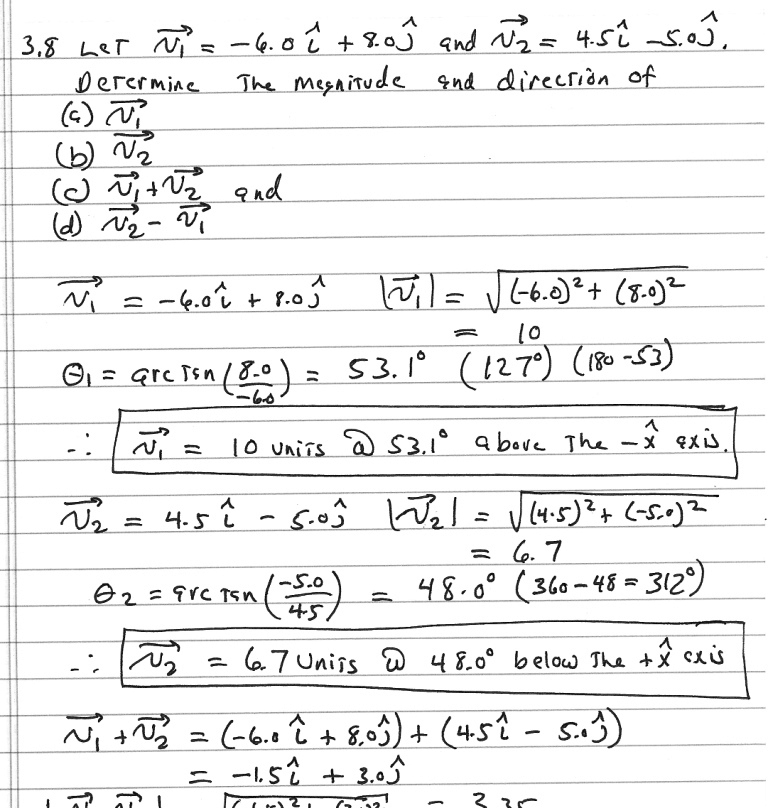 3.8 Let v⃗₁ = -6.0 î + 8.0 ĵ and v⃗₂ = 4.5 î - 5.0 ĵ.
Determine The magnitude and direction of
(a) v⃗₁
(b) v⃗₂
(c) v⃗₁ + v⃗₂ and
(d) v⃗₂ - v⃗₁
v⃗₁ = -6.0 î + 8.0 ĵ |v⃗₁| = √((-6.0)² + (8.0)²)
= 10
θ₁ = arctan(8.0/-6.0) = 53.1° (127°) (180-53)
∴ v⃗₁ = 10 units @ 53.1° above The -x̂ axis.
v⃗₂ = 4.5 î - 5.0 ĵ |v⃗₂| = √((4.5)² + (-5.0)²)
= 6.7
θ2 = arctan(-5.0/4.5) = 48.0° (360-48 = 312°)
∴ v⃗₂ = 6.7 Units @ 48.0° below The +x̂ axis
v⃗₁ + v⃗₂ = (-6.0 î + 8.0 ĵ) + (4.5 î - 5.0 ĵ)
= -1.5 î + 3.0 ĵ
= 3.35